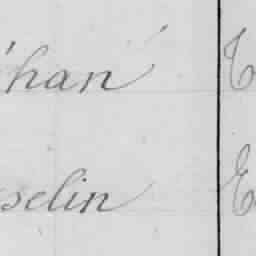 han
selin